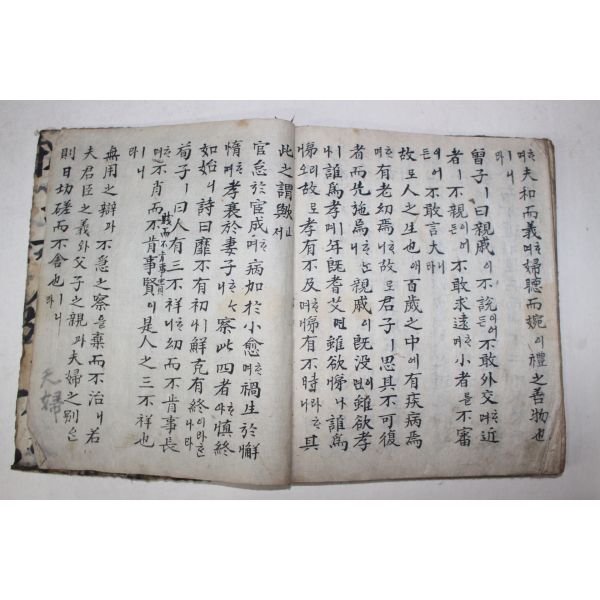 며ᄒᆞ 夫和而義며ᄒᆞ 婦聽而婉이 禮之善物也
ㅣ니라
曾子ㅣ 曰親戚이 不說이어든 不敢外交며ᄒᆞ 近
者ㅣ 不親이어든 不敢求遠며ᄒᆞ 小者를 不審
이어든 不敢言大니라
故로 人之生也애 百歲之中에 有疾病焉
며ᄒᆞ 有老幼焉니ᄒᆞ 故로 君子ㅣ 思其不可復
者而先施焉니ᄒᆞ 親戚이 旣沒이면 雖欲孝
ㅣ나 誰爲孝ㅣ며 年旣耆艾면 雖欲悌나 誰爲
悌리오 故로 孝有不及며ᄒᆞ 悌有不時라ᄒᆞ니 其
此之謂歟인저
官怠於宦成며ᄒᆞ 病加於小愈며ᄒᆞ 禍生於懈
惰며ᄒᆞ 孝衰於妻子니ᄒᆞ 察此四者야ᄒᆞ 愼終
如始니 詩曰靡不有初ㅣ나 鮮克有終이라ᄒᆞ니라
荀子ㅣ 曰人有三不祥니ᄒᆞ 幼而不肯事長
며ᄒᆞ 賤而不肯事貴며ᄒᆞ 不肖而不肯事賢이 是人之三不祥也
ㅣ니라
無用之辯과 不急之察을 棄而不治니 若
夫君臣之義와 父子之親과 夫婦之別은
則日切磋而不舍也ㅣ니라
夫婦